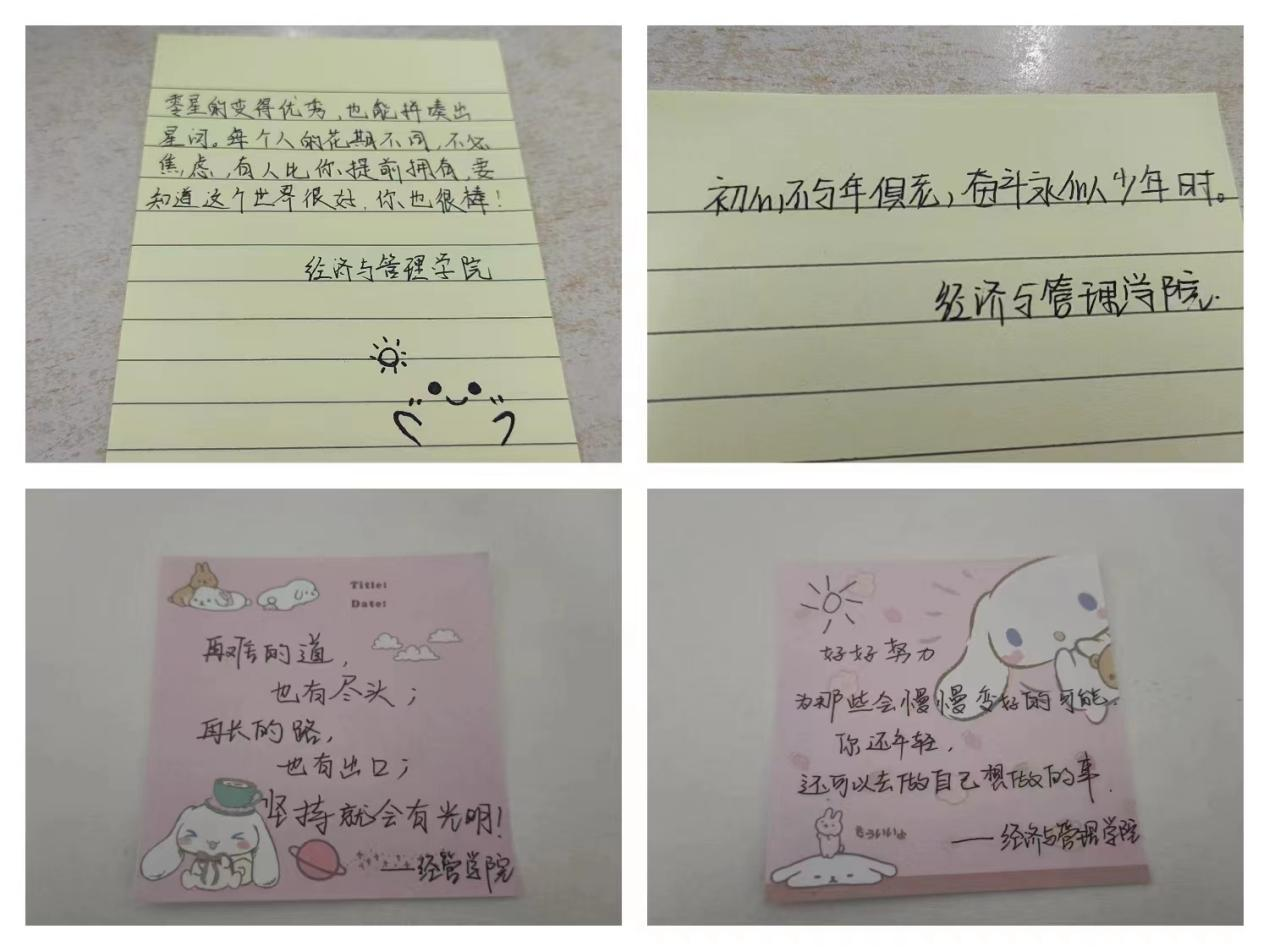 零星的变得优秀，也能拼凑出
星河。每个人的花期不同，不必
焦虑，有人比你提前拥有，要
知道这个世界很好，你也很棒！
经济与管理学院
初心不与年俱老，奋斗永似少年时。
经济与管理学院
Title:
Date:
再难的道，
也有尽头；
再长的路，
也有出口；
坚持就会有光明！
——经管学院
好好努力
为那些会慢慢变好的可能.
你还年轻，
还可以去做自己想做的事.
——经济与管理学院